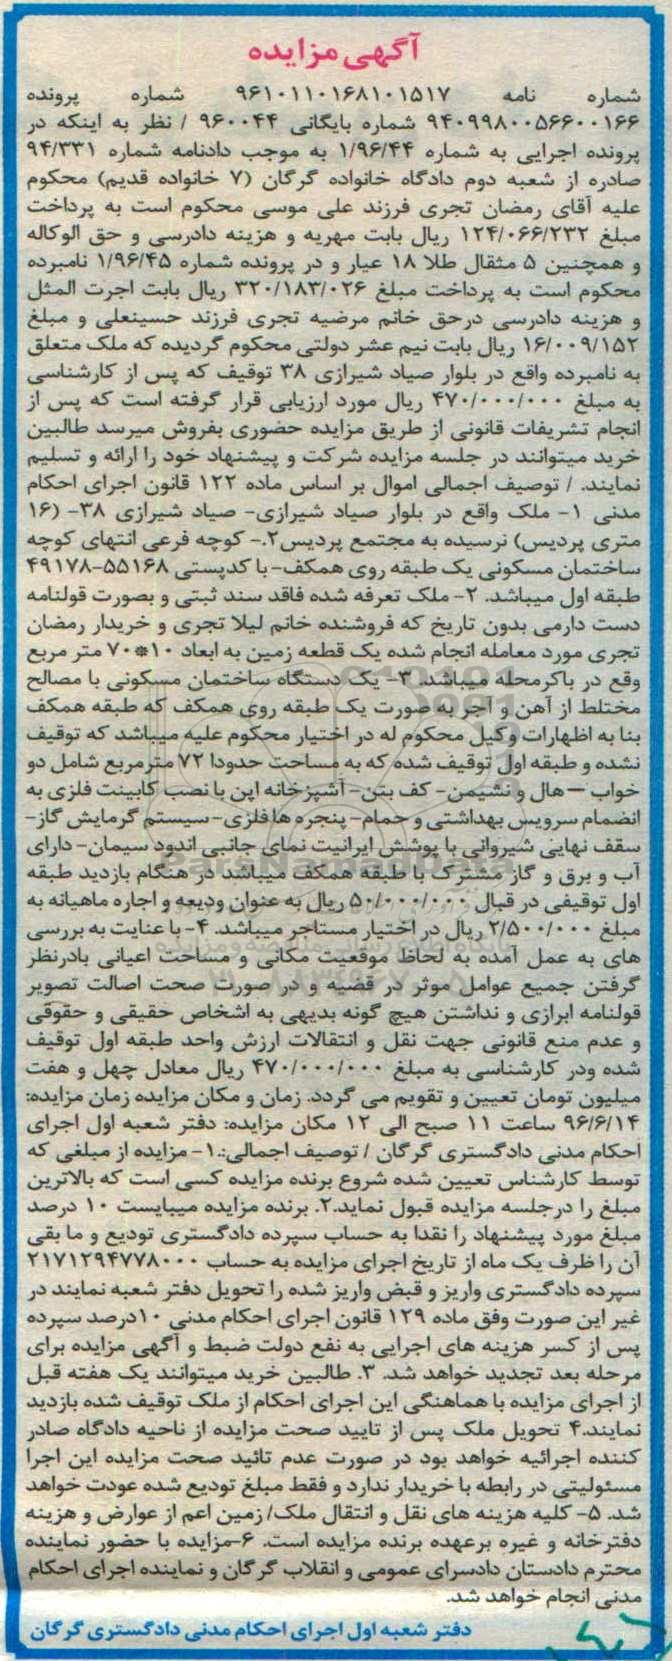 آگهی مزایده
شماره نامه ۹۶۱۰۱۱۰۱۶۸۱۰۱۵۱۷ شماره پرونده
۹۴۰۹۹۸۰۰۵۶۶۰۰۱۶۶ شماره بایگانی ۹۶۰۰۴۴ / نظر به اینکه در
پرونده اجرایی به شماره ۱/۹۶/۴۴ به موجب دادنامه شماره ۹۴/۳۳۱
صادره از شعبه دوم دادگاه خانواده گرگان (۷ خانواده قدیم) محکوم
علیه آقای رمضان تجری فرزند علی موسی محکوم است به پرداخت
مبلغ ۱۲۴/۰۶۶/۲۳۲ ریال بابت مهریه و هزینه دادرسی و حق الوکاله
و همچنین ۵ مثقال طلا ۱۸ عیار و در پرونده شماره ۱/۹۶/۴۵ نامبرده
محکوم است به پرداخت مبلغ ۳۲۰/۱۸۳/۰۲۶ ریال بابت اجرت المثل
و هزینه دادرسی درحق خانم مرضیه تجری فرزند حسینعلی و مبلغ
۱۶/۰۰۹/۱۵۲ ریال بابت نیم عشر دولتی محکوم گردیده که ملک متعلق
به نامبرده واقع در بلوار صیاد شیرازی ۳۸ توقیف که پس از کارشناسی
به مبلغ ۴۷۰/۰۰۰/۰۰۰ ریال مورد ارزیابی قرار گرفته است که پس از
انجام تشریفات قانونی از طریق مزایده حضوری بفروش میرسد طالبین
خرید میتوانند در جلسه مزایده شرکت و پیشنهاد خود را ارائه و تسلیم
نمایند. / توصیف اجمالی اموال بر اساس ماده ۱۲۲ قانون اجرای احکام
مدنی ۱- ملک واقع در بلوار صیاد شیرازی- صیاد شیرازی ۳۸- (۱۶
متری پردیس) نرسیده به مجتمع پردیس۲.- کوچه فرعی انتهای کوچه
ساختمان مسکونی یک طبقه روی همکف- با کدپستی ۵۵۱۶۸-۴۹۱۷۸
طبقه اول میباشد. ۲- ملک تعرفه شده فاقد سند ثبتی و بصورت قولنامه
دست دارمی بدون تاریخ که فروشنده خانم لیلا تجری و خریدار رمضان
تجری مورد معامله انجام شده یک قطعه زمین به ابعاد ۱۰*۷۰ متر مربع
وقع در باکرمحله میباشد. ۳- یک دستگاه ساختمان مسکونی با مصالح
مختلط از آهن و آجر به صورت یک طبقه روی همکف که طبقه همکف
بنا به اظهارات وکیل محکوم له در اختیار محکوم علیه میباشد که توقیف
نشده و طبقه اول توقیف شده که به مساحت حدودا ۷۲ مترمربع شامل دو
خواب – هال و نشیمن- کف بتن- آشپزخانه اپن با نصب کابینت فلزی به
انضمام سرویس بهداشتی و حمام- پنجره ها فلزی- سیستم گرمایش گاز-
سقف نهایی شیروانی با پوشش ایرانیت نمای جانبی اندود سیمان- دارای
آب و برق و گاز مشترک با طبقه همکف میباشد در هنگام بازدید طبقه
اول توقیفی در قبال ۵۰/۰۰۰/۰۰۰ ریال به عنوان ودیعه و اجاره ماهیانه به
مبلغ ۲/۵۰۰/۰۰۰ ریال در اختیار مستاجر میباشد. ۴- با عنایت به بررسی
های به عمل آمده به لحاظ موقعیت مکانی و مساحت اعیانی بادرنظر
گرفتن جمیع عوامل موثر در قضیه و در صورت صحت اصالت تصویر
قولنامه ابرازی و نداشتن هیچ گونه بدیهی به اشخاص حقیقی و حقوقی
و عدم منع قانونی جهت نقل و انتقالات ارزش واحد طبقه اول توقیف
شده ودر کارشناسی به مبلغ ۴۷۰/۰۰۰/۰۰۰ ریال معادل چهل و هفت
میلیون تومان تعیین و تقویم می گردد. زمان و مکان مزایده زمان مزایده:
۹۶/۶/۱۴ ساعت ۱۱ صبح الی ۱۲ مکان مزایده: دفتر شعبه اول اجرای
احکام مدنی دادگستری گرگان / توصیف اجمالی:.۱- مزایده از مبلغی که
توسط کارشناس تعیین شده شروع برنده مزایده کسی است که بالاترین
مبلغ را درجلسه مزایده قبول نماید.۲. برنده مزایده میبایست ۱۰ درصد
مبلغ مورد پیشنهاد را نقدا به حساب سپرده دادگستری تودیع و ما بقی
آن را ظرف یک ماه از تاریخ اجرای مزایده به حساب ۲۱۷۱۲۹۴۷۷۸۰۰۰
سپرده دادگستری واریز و قبض واریز شده را تحویل دفتر شعبه نمایند در
غیر این صورت وفق ماده ۱۲۹ قانون اجرای احکام مدنی ۱۰درصد سپرده
پس از کسر هزینه های اجرایی به نفع دولت ضبط و آگهی مزایده برای
مرحله بعد تجدید خواهد شد. ۳. طالبین خرید میتوانند یک هفته قبل
از اجرای مزایده با هماهنگی این اجرای احکام از ملک توقیف شده بازدید
نمایند.۴ تحویل ملک پس از تایید صحت مزایده از ناحیه دادگاه صادر
کننده اجرائیه خواهد بود در صورت عدم تائید صحت مزایده این اجرا
مسئولیتی در رابطه با خریدار ندارد و فقط مبلغ تودیع شده عودت خواهد
شد. ۵- کلیه هزینه های نقل و انتقال ملک/ زمین اعم از عوارض و هزینه
دفترخانه و غیره برعهده برنده مزایده است. ۶-مزایده با حضور نماینده
محترم دادستان دادسرای عمومی و انقلاب گرگان و نماینده اجرای احکام
مدنی انجام خواهد شد.
دفتر شعبه اول اجرای احکام مدنی دادگستری گرگان